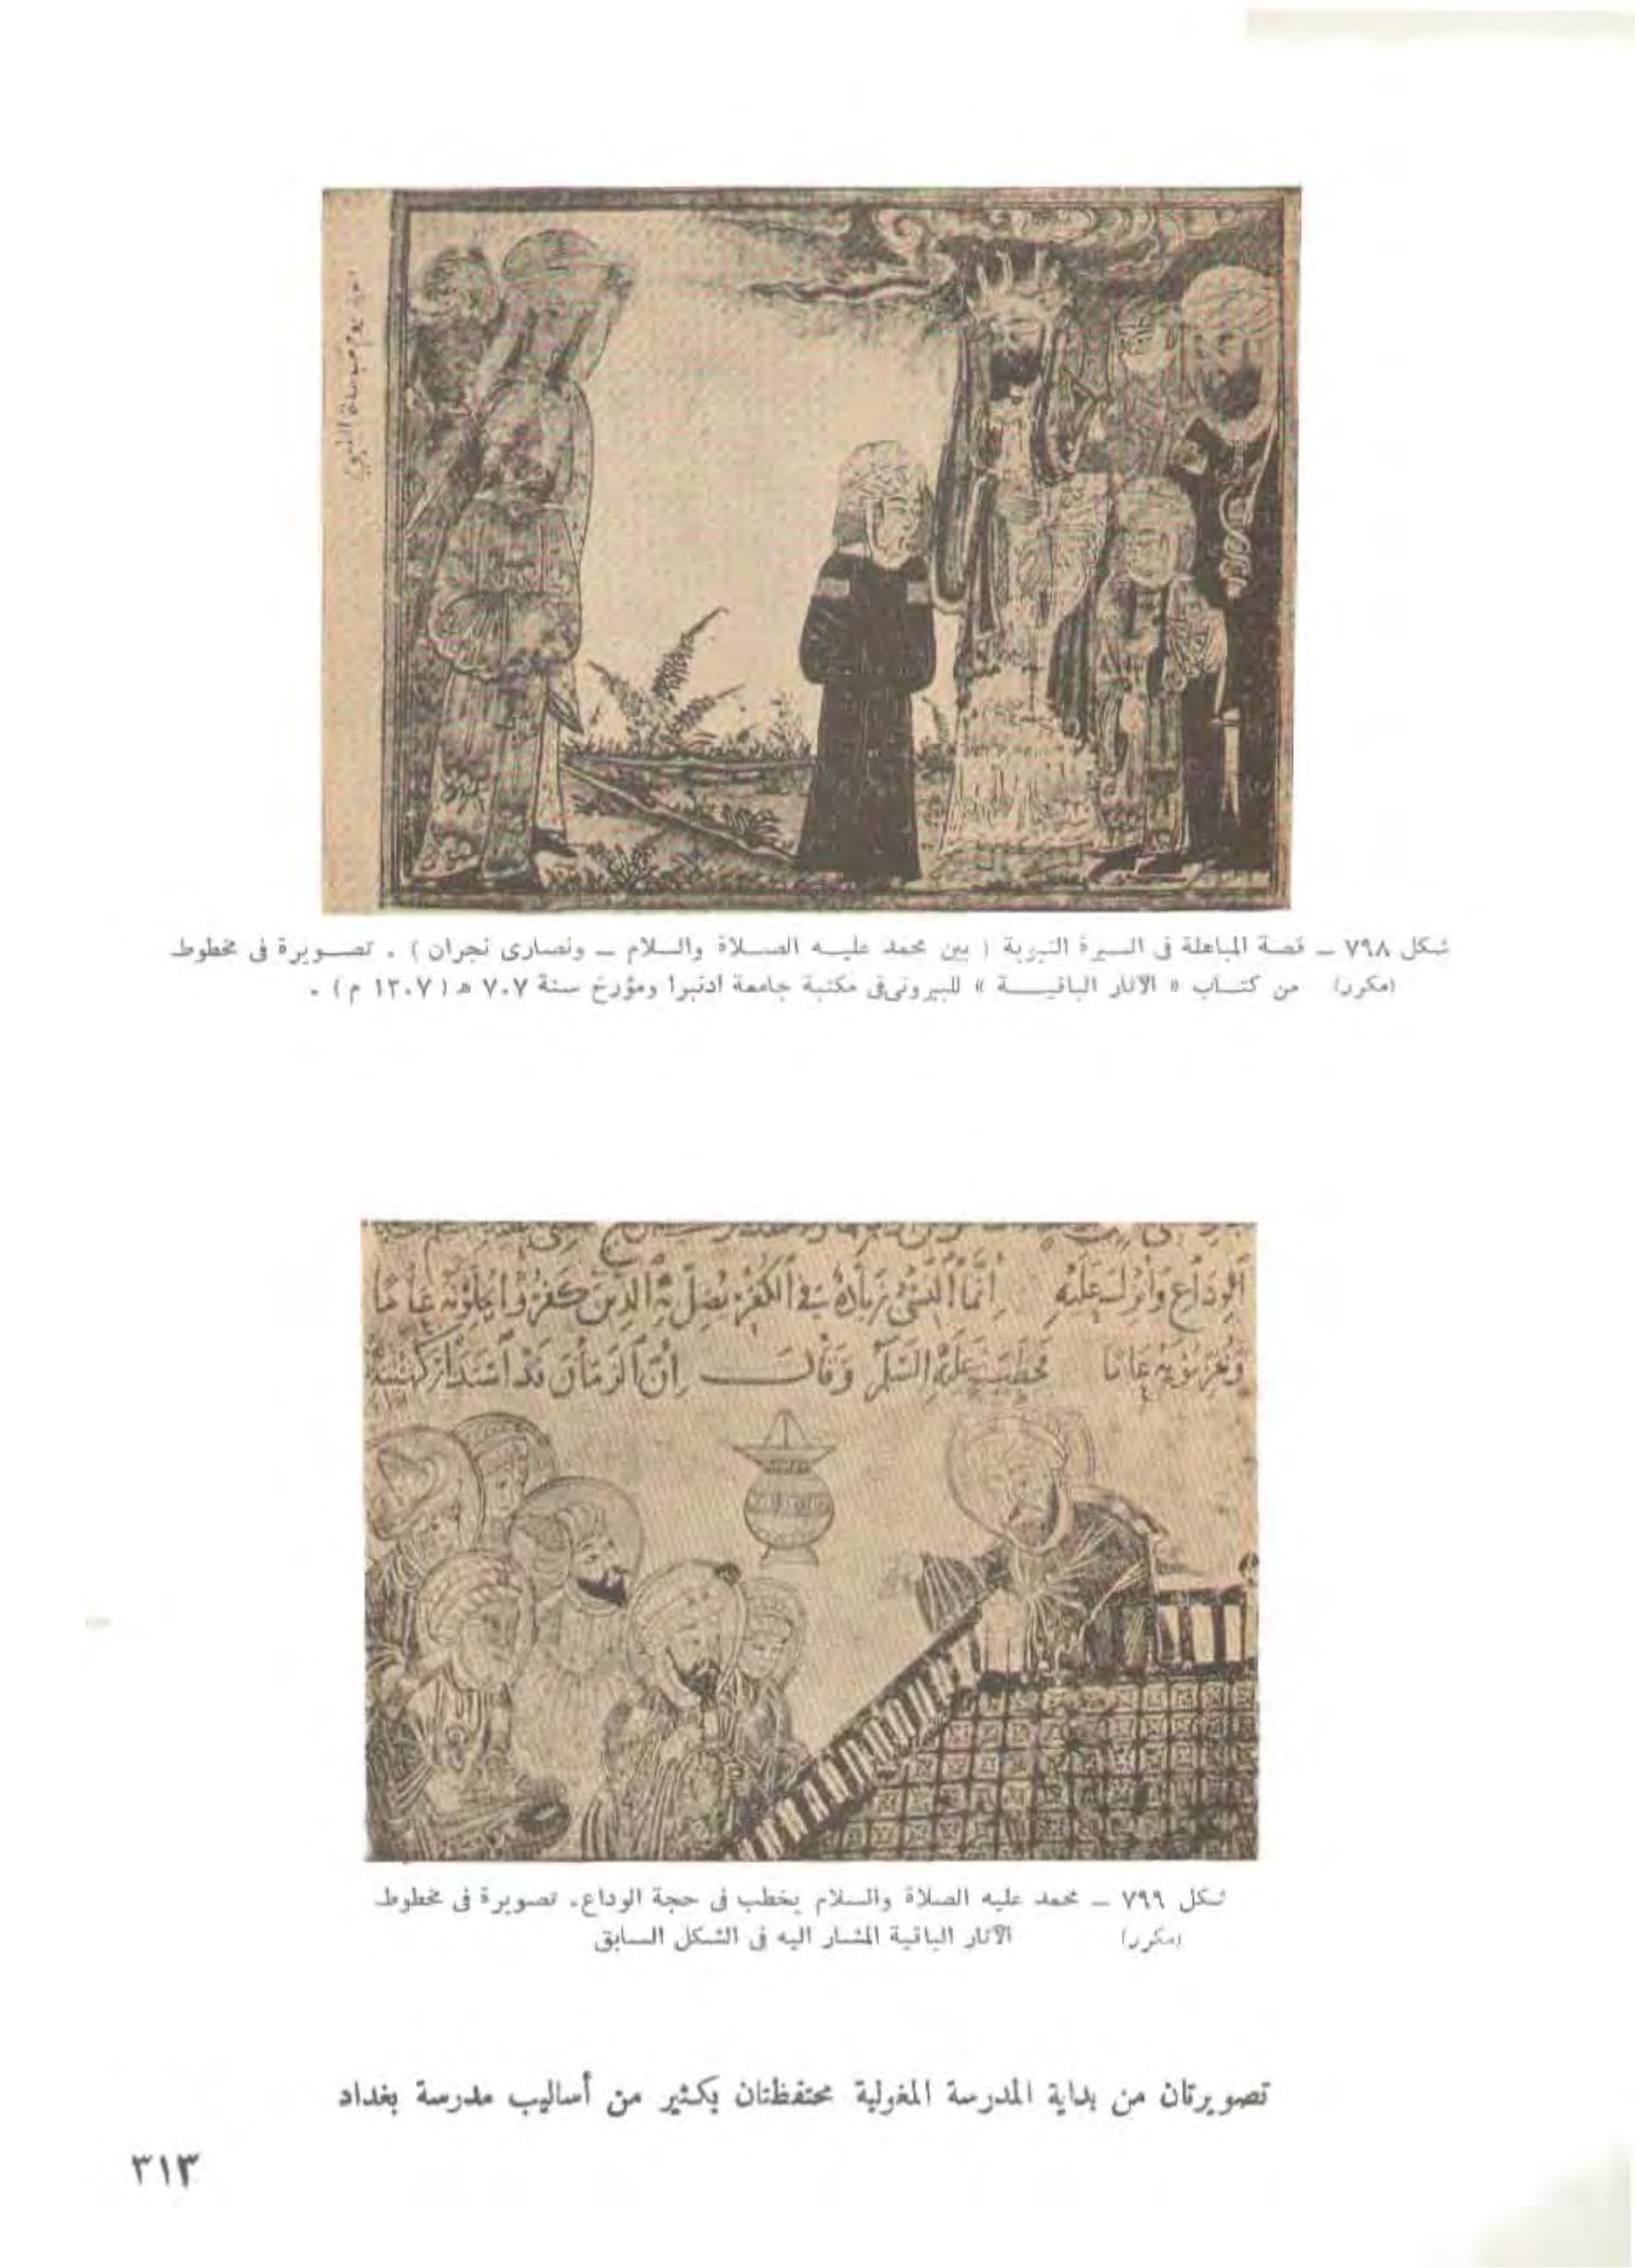 شكل ٧٩٨ ــ قصة المباهلة فى السيرة النبوية ( بين محمد عليه الصلاة والسلام ــ ونصارى نجران ) . تصويرة فى مخطوط
(مكرر) من كتاب « الآثار الباقية » للبيرونى فى مكتبة جامعة أدنبرا ومؤرخ سنة ٧٠٧ هـ ( ١٣٠٧ م ) .
الوداع وأنزل عليه إنما النسيء زيادة في الكفر يضل به الذين كفروا يحلونه عاما
ويحرمونه عاما فخطب عليه السلم وقال إن الزمان قد استدار كهيئة
شكل ٧٩٩ ــ محمد عليه الصلاة والسلام يخطب فى حجة الوداع. تصويرة فى مخطوط
(مكرر) الآثار الباقية المشار اليه فى الشكل السابق
تصويرتان من بداية المدرسة المغولية محتفظتان بكثير من أساليب مدرسة بغداد
٣١٣